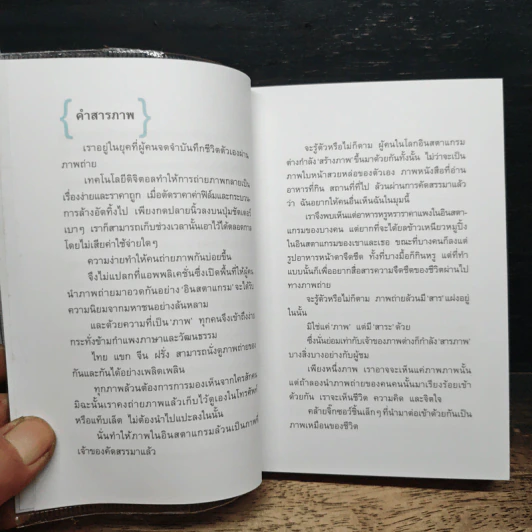 คำสารภาพ
เราอยู่ในยุคที่ผู้คนจดจำบันทึกชีวิตตัวเองผ่าน
ภาพถ่าย
เทคโนโลยีดิจิตอลทำให้การถ่ายภาพกลายเป็น
เรื่องง่ายและราคาถูก เมื่อตัดราคาค่าฟิล์มและกระบวน
การล้างอัดทิ้งไป เพียงกดปลายนิ้วลงบนปุ่มชัตเตอร์
เบาๆ เราก็สามารถเก็บช่วงเวลานั้นเอาไว้ได้ตลอด
โดยไม่เสียค่าใช้จ่ายใดๆ
ความง่ายทำให้คนถ่ายภาพกันบ่อยขึ้น
จึงไม่แปลกที่แอพพลิเคชั่นซึ่งเปิดพื้นที่ให้ผู้คน
นำภาพถ่ายมาอวดกันอย่าง 'อินสตาแกรม' จะได้รับ
ความนิยมจากมหาชนอย่างล้นหลาม
และด้วยความที่เป็น 'ภาพ' ทุกคนจึงเข้าถึงง่าย
กระทั่งข้ามกำแพงภาษาและวัฒนธรรม
ไทย แขก จีน ฝรั่ง สามารถนั่งดูภาพถ่ายของ
กันและกันได้อย่างเพลิดเพลิน
ทุกภาพล้วนต้องการการมองเห็นจากใครสักคน
มิฉะนั้นเราคงถ่ายภาพแล้วเก็บไว้ดูเองในโทรศัพท์
หรือแท็บเล็ต ไม่ต้องนำไปแปะลงในนั้น
นั่นทำให้ภาพในอินสตาแกรมล้วนเป็นภาพที่
เจ้าของคัดสรรมาแล้ว
จะรู้ตัวหรือไม่ก็ตาม ผู้คนในโลกอินสตาแกรม
ต่างกำลัง 'สร้างภาพ' ขึ้นมาด้วยกันทั้งนั้น ไม่ว่าจะเป็น
ภาพใบหน้าสวยหล่อของตัวเอง ภาพหนังสือที่อ่าน
อาหารที่กิน สถานที่ที่ไป ล้วนผ่านการคัดสรรมาแล้ว
ว่า ฉันอยากให้คนอื่นเห็นฉันในมุมนี้
เราจึงพบเห็นแต่อาหารหรูหราราคาแพงในอินสตา-
แกรมของบางคน แต่ยากที่จะได้ยลข้าวเหนียวหมูปิ้ง
ในอินสตาแกรมของเขาและเธอ ขณะที่บางคนก็ลงแต่
รูปอาหารหน้าตาจืดชืด ทั้งที่บางมื้อก็กินหรู แต่ที่ทำ
แบบนั้นก็เพื่ออยากสื่อสารความจืดชืดของชีวิตผ่านไป
ทางภาพถ่าย
จะรู้ตัวหรือไม่ก็ตาม ภาพถ่ายล้วนมี 'สาร' แฝงอยู่
ในนั้น
มิใช่แค่ 'ภาพ' แต่มี 'สาระ' ด้วย
ซึ่งนั่นย่อมเท่ากับเจ้าของภาพต่างก็กำลัง 'สารภาพ'
บางสิ่งบางอย่างกับผู้ชม
เพียงหนึ่งภาพ เราอาจจะเห็นแค่ภาพภาพนั้น
แต่ถ้าลองนำภาพถ่ายของคนคนนั้นมาเรียงร้อยเข้า
ด้วยกัน เราจะเห็นชีวิต ความคิด และจิตใจ
คล้ายจิ๊กซอว์ชิ้นเล็กๆ ที่นำมาต่อเข้าด้วยกันเป็น
ภาพเหมือนของชีวิต